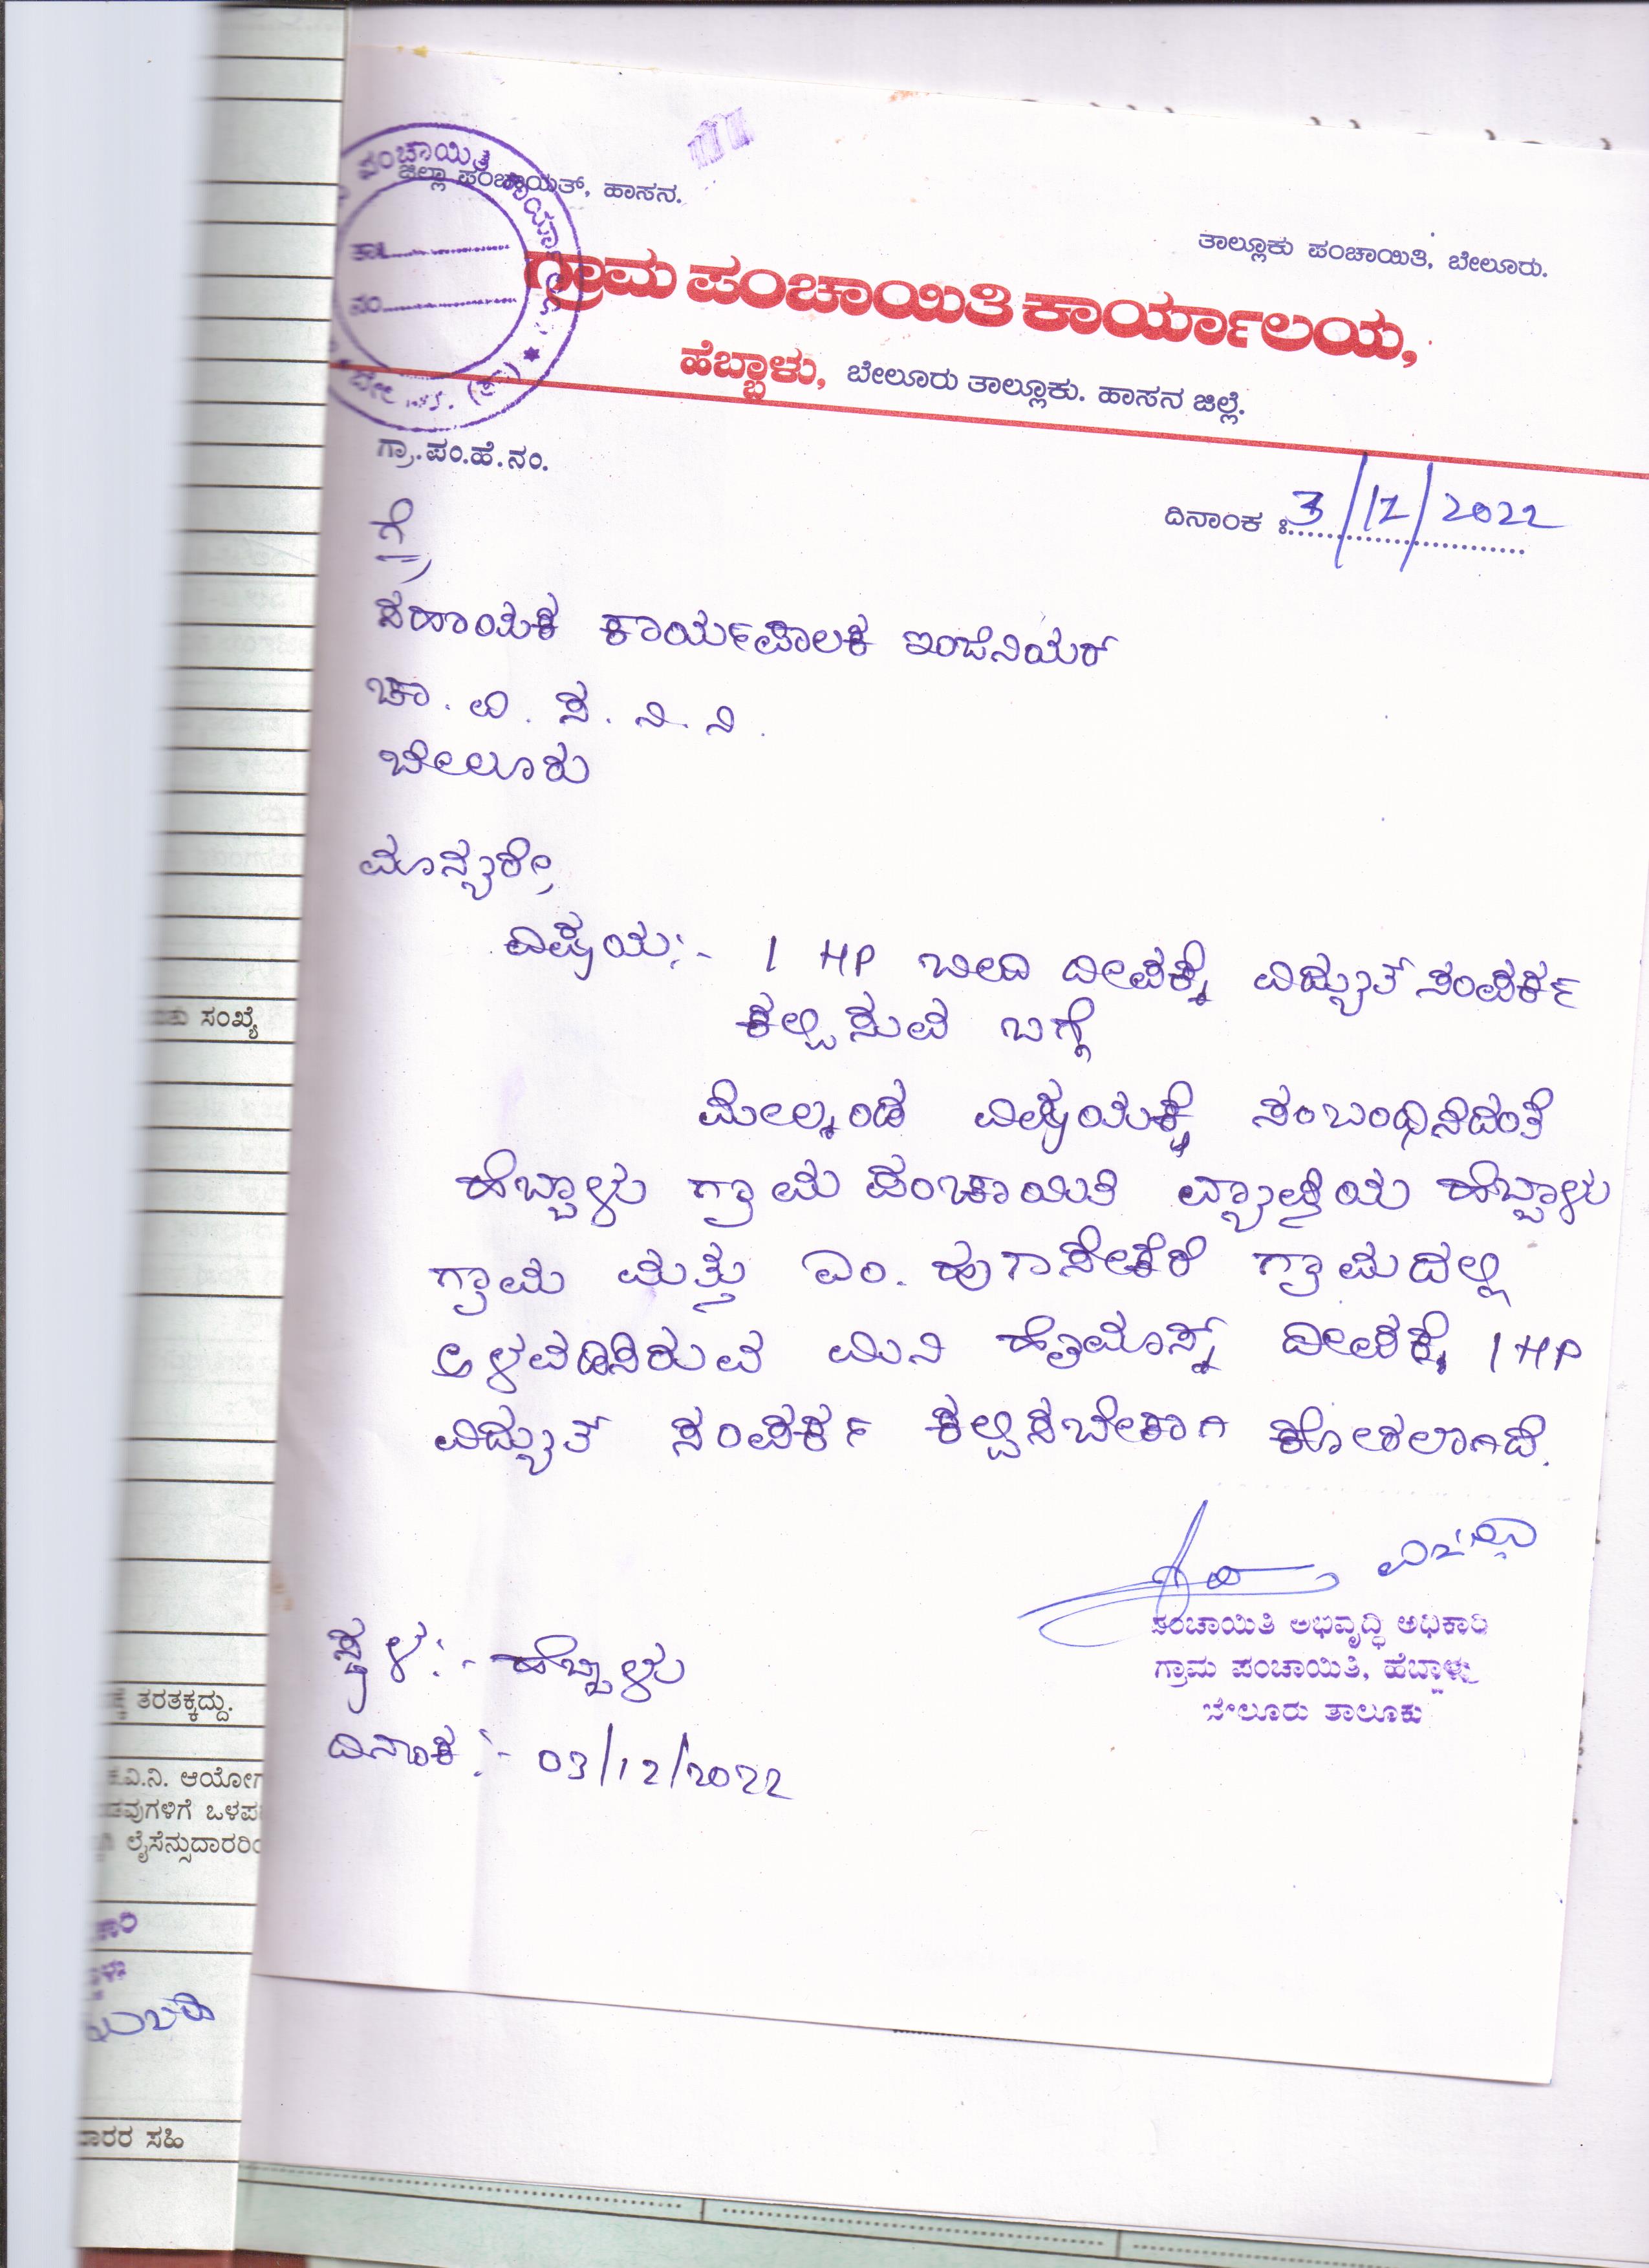 ಜಿಲ್ಲಾ ಪಂಚಾಯತ್, ಹಾಸನ.
ತಾಲ್ಲೂಕು ಪಂಚಾಯಿತಿ, ಬೇಲೂರು.
ಪಂಚಾಯಿತಿ ಕಾರ್ಯಾ
ನಂ
ಗ್ರಾಮ ಪಂಚಾಯಿತಿ ಕಾರ್ಯಾಲಯ,
ಹೆಬ್ಬಾಳು, ಬೇಲೂರು ತಾಲ್ಲೂಕು. ಹಾಸನ ಜಿಲ್ಲೆ.
ಗ್ರಾ.ಪಂ.ಹೆ.ನಂ.
ದಿನಾಂಕ : 3/12/2022
ಗೆ,
ಸಹಾಯಕ ಕಾರ್ಯಪಾಲಕ ಇಂಜಿನಿಯರ್
ಚಾ. ವಿ. ಸ. ನಿ. ನಿ.
ಬೇಲೂರು
ಮಾನ್ಯರೇ,
ವಿಷಯ:- 1 HP ಬೀದಿ ದೀಪಕ್ಕೆ ವಿದ್ಯುತ್ ಸಂಪರ್ಕ
ಕಲ್ಪಿಸುವ ಬಗ್ಗೆ
ಮೇಲ್ಕಂಡ ವಿಷಯಕ್ಕೆ ಸಂಬಂಧಿಸಿದಂತೆ
ಹೆಬ್ಬಾಳು ಗ್ರಾಮ ಪಂಚಾಯಿತಿ ವ್ಯಾಪ್ತಿಯ ಹೆಬ್ಬಾಳು
ಗ್ರಾಮ ಮತ್ತು ಎಂ. ಗ್ರಾಮದಲ್ಲಿ
ಅಳವಡಿಸಿರುವ ಮಿನಿ ಹೈಮಾಸ್ಕ್ ದೀಪಕ್ಕೆ 1 HP
ವಿದ್ಯುತ್ ಸಂಪರ್ಕ ಕಲ್ಪಿಸಬೇಕಾಗಿ ಕೋರಲಾಗಿದೆ.
ಪಂಚಾಯಿತಿ ಅಭಿವೃದ್ಧಿ ಅಧಿಕಾರಿ
ಗ್ರಾಮ ಪಂಚಾಯಿತಿ, ಹೆಬ್ಬಾಳು
ಬೇಲೂರು ತಾಲೂಕು
ಸ್ಥಳ:- ಹೆಬ್ಬಾಳು
ದಿನಾಂಕ:- 03/12/2022
ಸಂಖ್ಯೆ
ತರತಕ್ಕದ್ದು.
ಕ.ವಿ.ನಿ. ಆಯೋಗ
ಒಳಪ
ಲೈಸೆನ್ಸುದಾರರಿಂ
ಸಹಿ